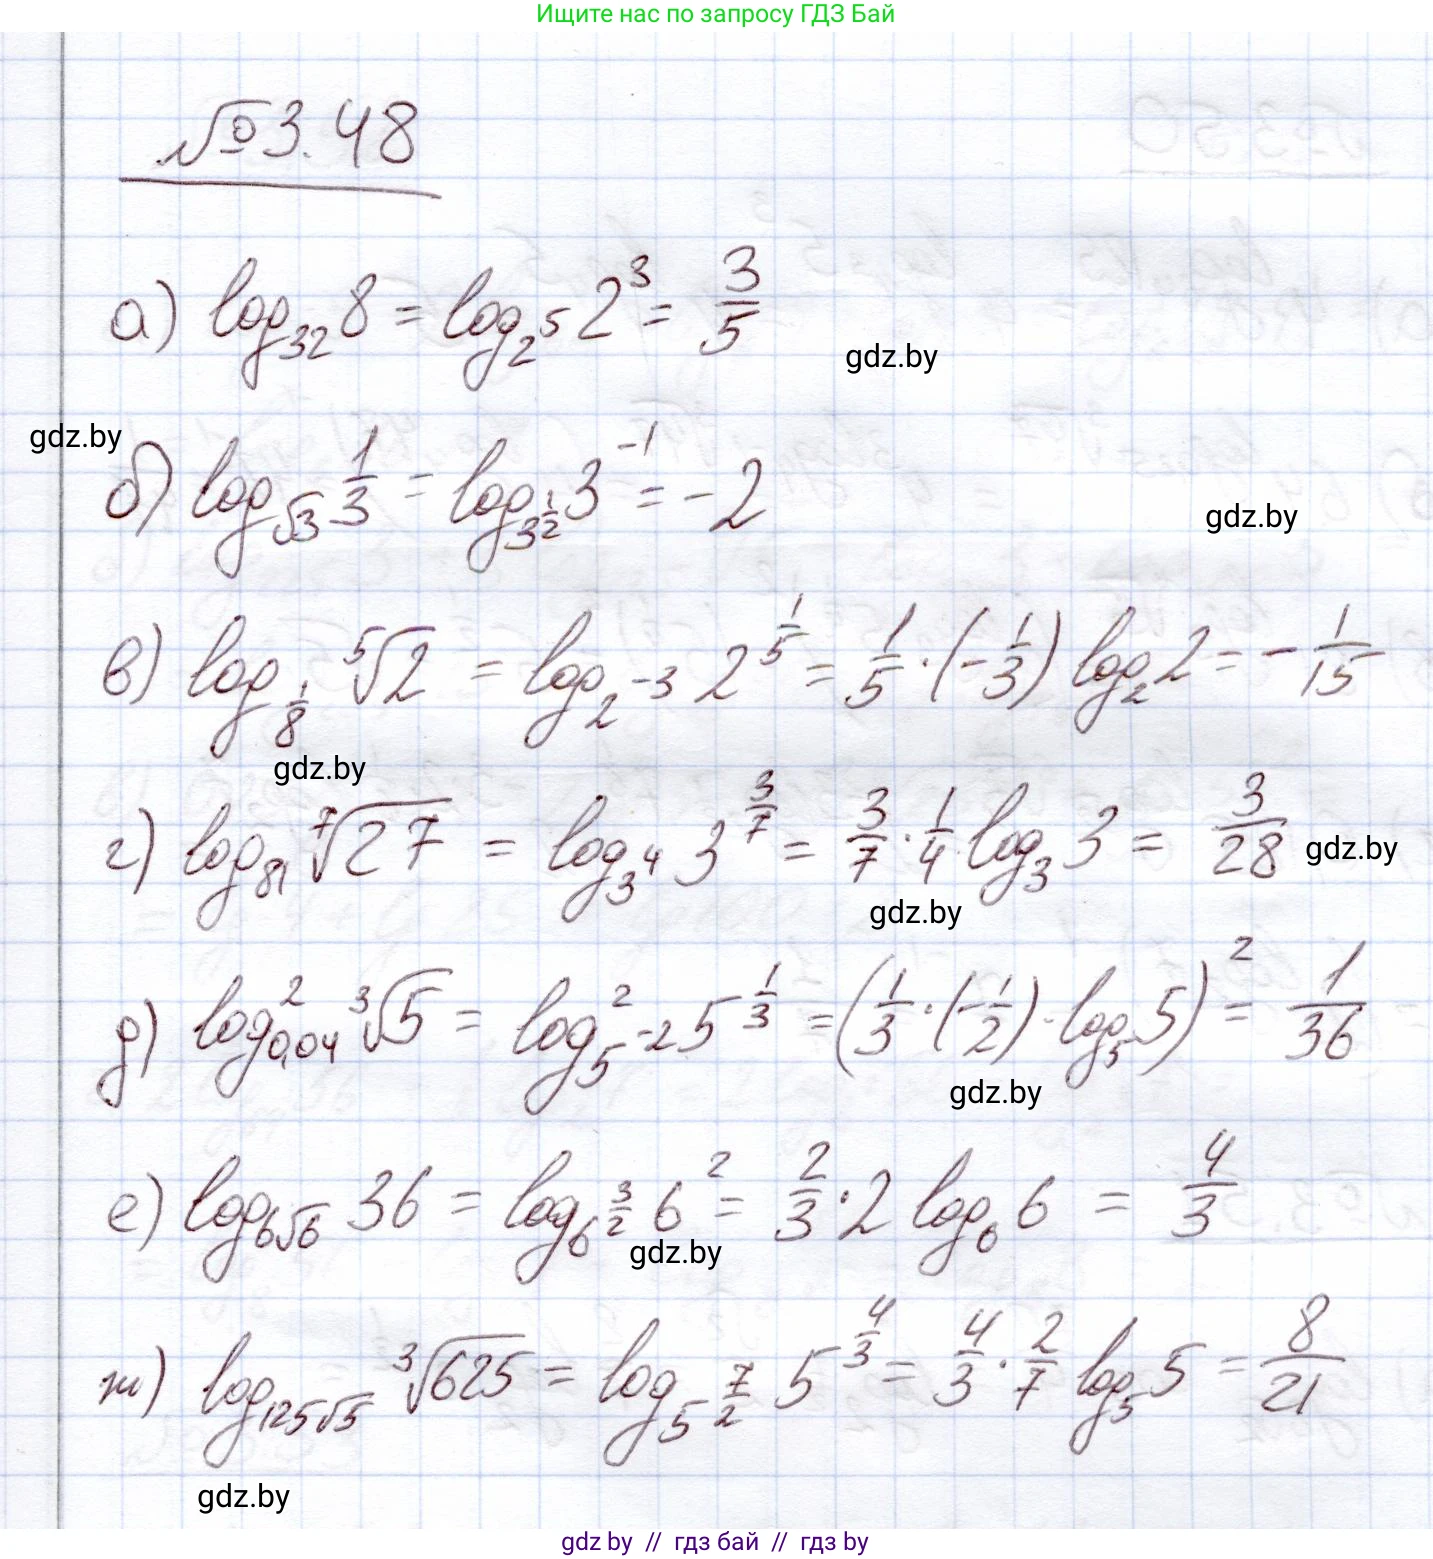 Ищите нас по запросу ГДЗ Бай
№3.48
а) log₃₂ 8 = log_{2^5} 2^3 = 3/5
gdz.by
gdz.by
б) log_{√3} 1/3 = log_{3^{1/2}} 3^{-1} = -2
gdz.by
в) log_{1/8} ⁵√2 = log_{2^{-3}} 2^{1/5} = 1/5 · (-1/3) log₂ 2 = -1/15
gdz.by
г) log₈₁ ⁷√27 = log_{3^4} 3^{3/7} = 3/7 · 1/4 log₃ 3 = 3/28
gdz.by
gdz.by
д) log²_{0,04} ³√5 = log²_{5^{-2}} 5^{1/3} = (1/3 · (-1/2) · log₅ 5)² = 1/36
gdz.by
е) log_{6√6} 36 = log_{6^{3/2}} 6² = 2/3 · 2 log₆ 6 = 4/3
gdz.by
ж) log_{125√5} ³√625 = log_{5^{7/2}} 5^{4/3} = 4/3 · 2/7 log₅ 5 = 8/21
gdz.by
gdz by // гдз бай // гдз by